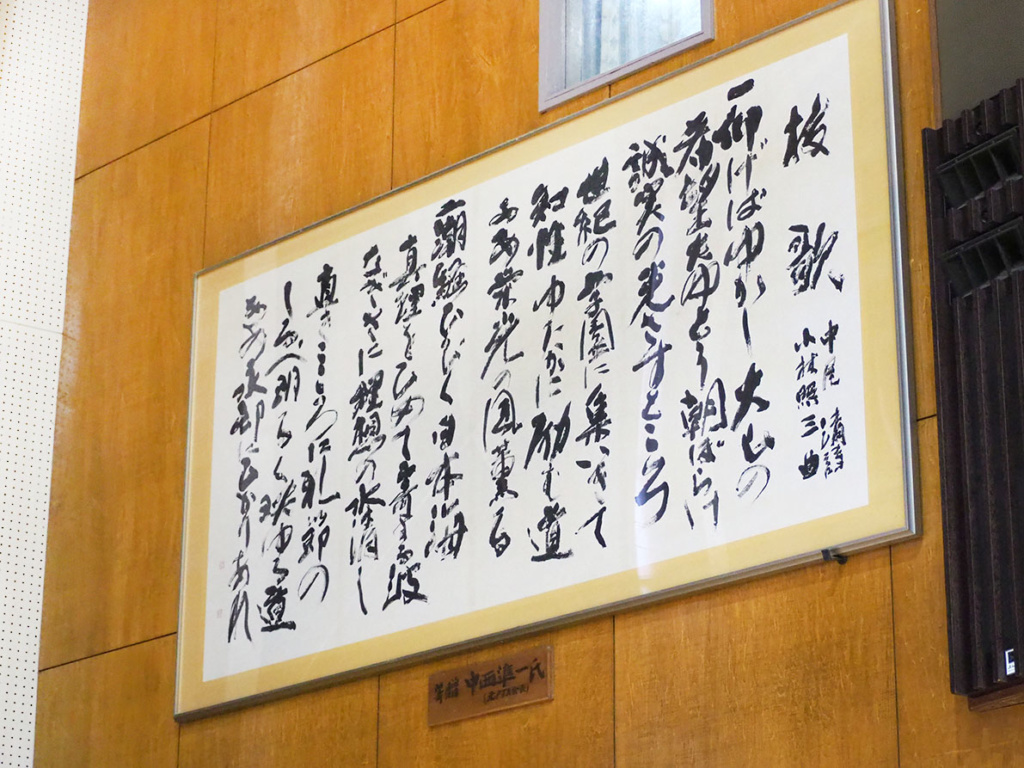 校歌
中尾
小林照三 曲
一 仰げばゆかし大山の
希望たゆとう朝ぼらけ
誠実の光さすところ
世紀の学園に集いきて
知性ゆたかに励む道
ああ栄光の風薫る
二 潮騒ひびく日本海
真理をひめて寄する波
なぎさに理想の水清し
直きこころに礼節の
しるべ明るく映ゆる道
ああ永却にひかりあれ
中西進一氏